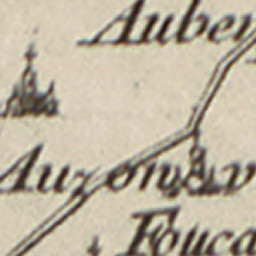 Auber
Auzonv
Fouca